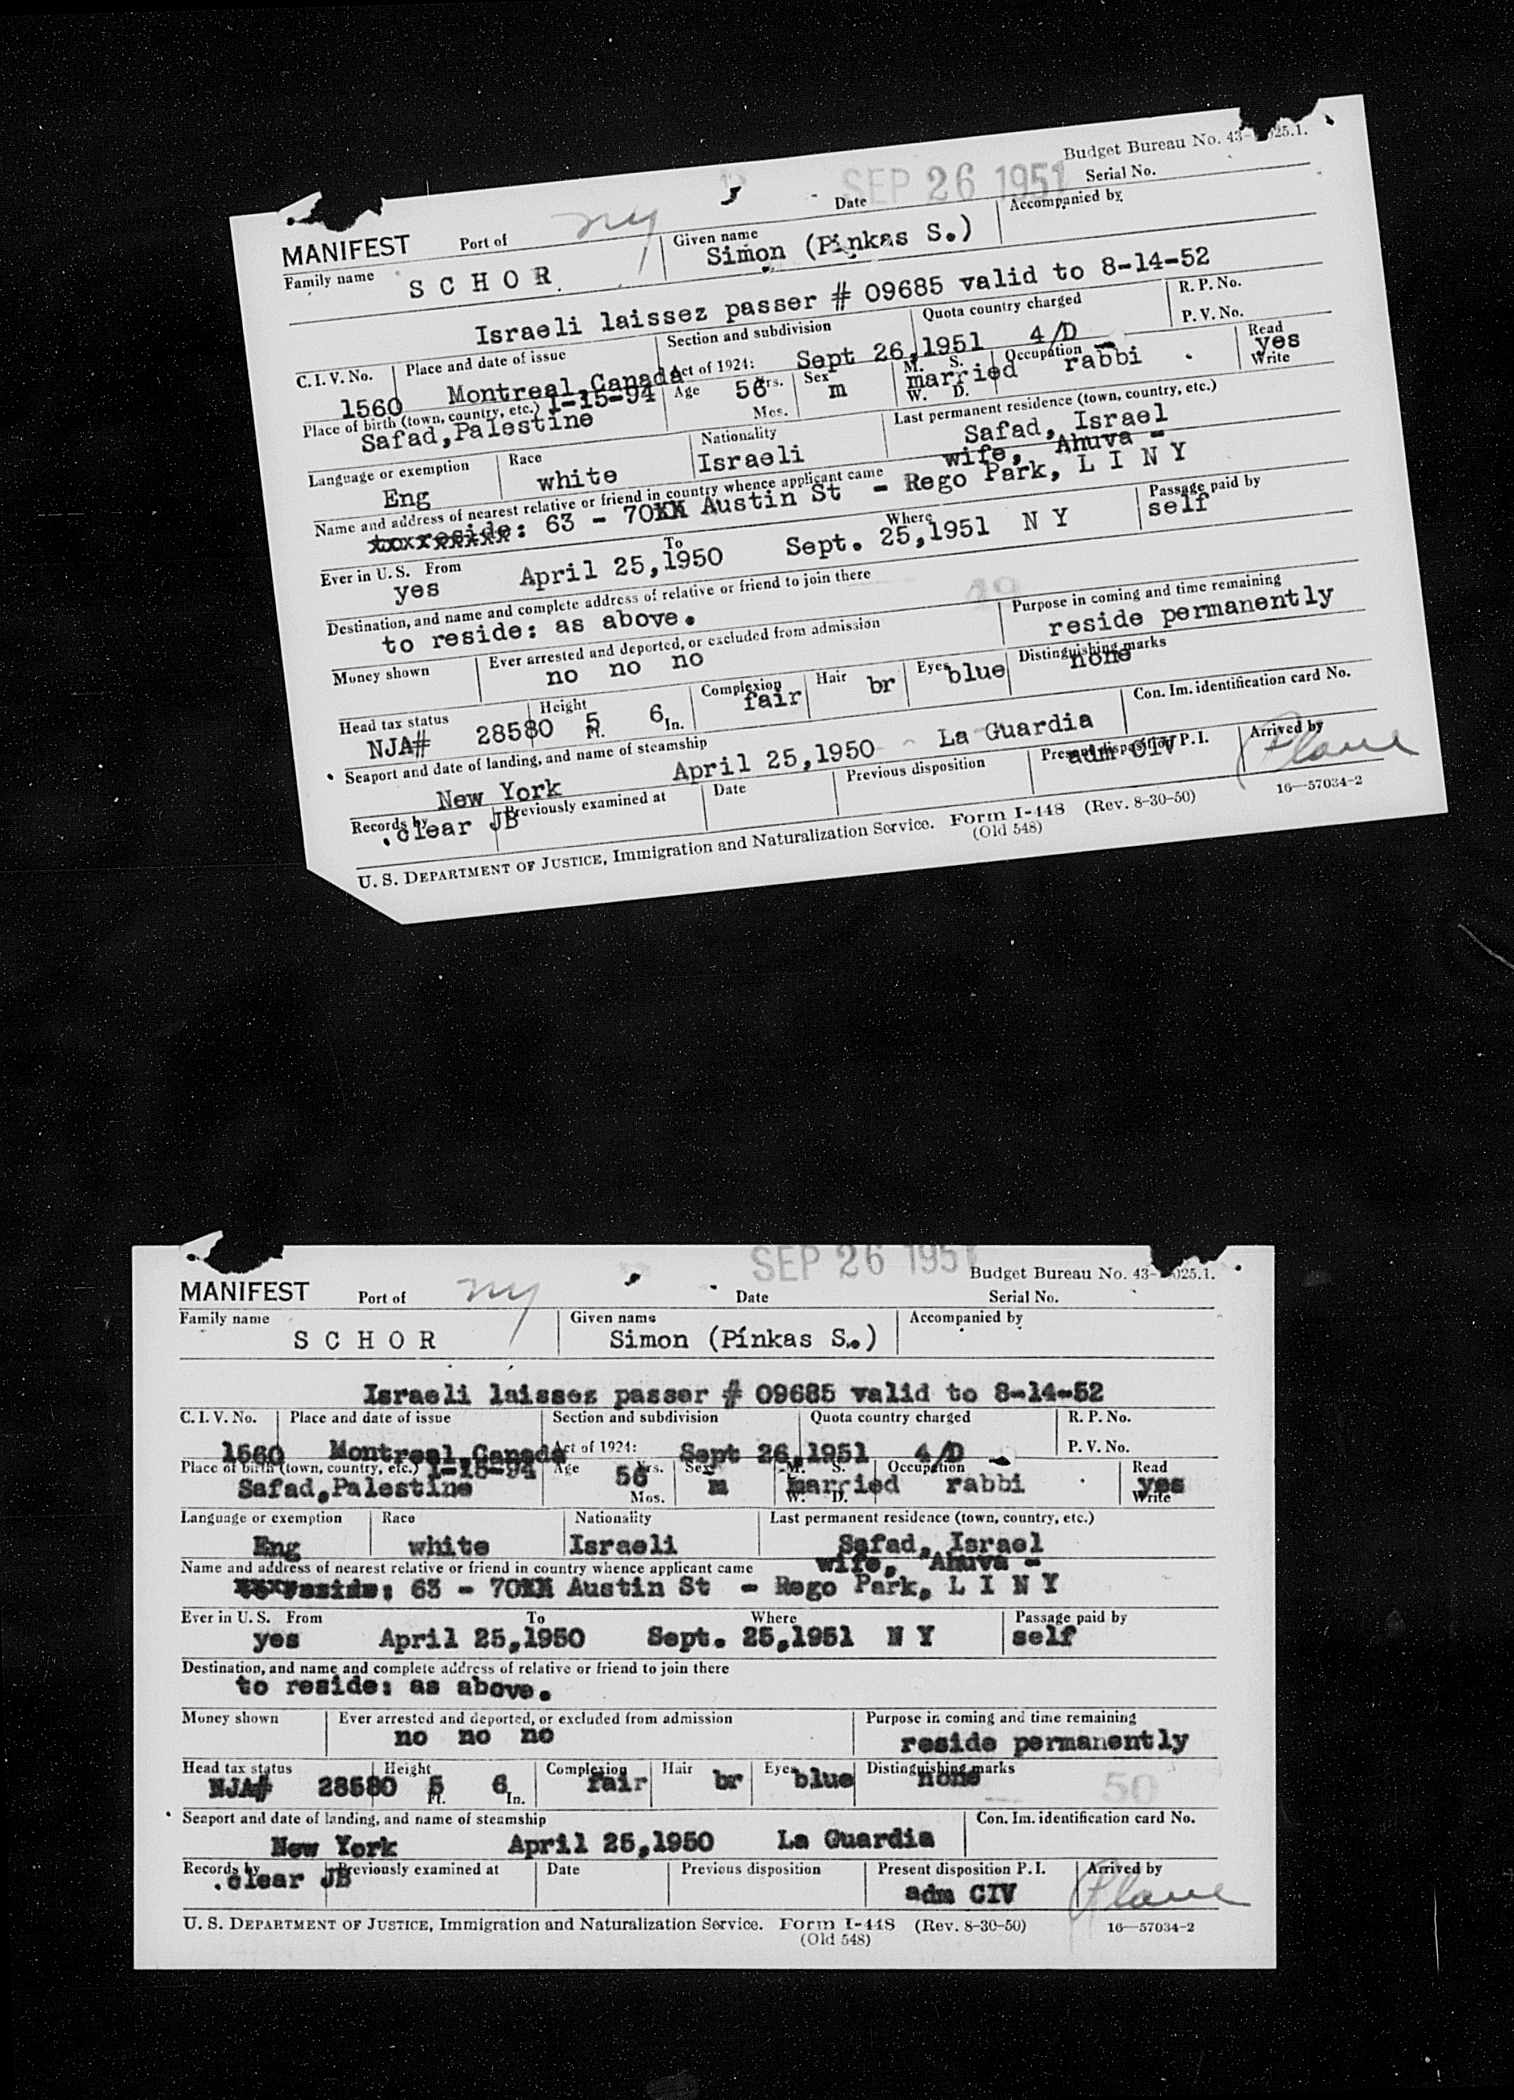 Budget Bureau No. 43- 025.1.
MANIFEST Port of NY Date SEP 26 1951 Serial No.
Family name SCHOR Given name Simon (Pinkas S.) Accompanied by
Israeli laissez passer # 09685 valid to 8-14-52
C. I. V. No. Place and date of issue Section and subdivision Quota country charged R. P. No.
1560 Montreal, Canada Act of 1924: Sept 26,1951 4/D P. V. No.
Place of birth (town, country, etc.) 1-15-94 Age 56 Yrs. Sex M. S. Occupation Read
Safad,Palestine Mos. m married W. D. rabbi yes Write
Language or exemption Race Nationality Last permanent residence (town, country, etc.)
Eng white Israeli Safad, Israel
Name and address of nearest relative or friend in country whence applicant came wife, Ahuva -
to reside: 63 - 70XX Austin St - Rego Park, L I N Y
Ever in U. S. From To Where Passage paid by
yes April 25,1950 Sept. 25,1951 N Y self
Destination, and name and complete address of relative or friend to join there
to reside: as above. 49
Money shown Ever arrested and deported, or excluded from admission Purpose in coming and time remaining
no no no reside permanently
Head tax status Height Complexion Hair Eyes Distinguishing marks
NJA# 28580 5 Ft. 6 In. fair br blue none
Seaport and date of landing, and name of steamship Con. Im. identification card No.
New York April 25,1950 La Guardia
Records by Previously examined at Date Previous disposition Present disposition P. I. Arrived by
clear JB adm CIV Plane
U. S. DEPARTMENT OF JUSTICE, Immigration and Naturalization Service. Form I-448 (Rev. 8-30-50) 16—57034-2
(Old 548)
SEP 26 1951 Budget Bureau No. 43- 025.1.
MANIFEST Port of NY Date Serial No.
Family name Given name Accompanied by
SCHOR Simon (Pinkas S.)
Israeli laissez passer # 09685 valid to 8-14-52
C. I. V. No. Place and date of issue Section and subdivision Quota country charged R. P. No.
1560 Montreal, Canada Act of 1924: Sept 26,1951 4/D P. V. No.
Place of birth (town, country, etc.) 1-15-94 Age 56 Yrs. Sex M. S. Occupation Read
Safad,Palestine Mos. m married W. D. rabbi yes Write
Language or exemption Race Nationality Last permanent residence (town, country, etc.)
Eng white Israeli Safad, Israel
Name and address of nearest relative or friend in country whence applicant came wife, Ahuva -
to reside: 63 - 70XX Austin St - Rego Park, L I N Y
Ever in U. S. From To Where Passage paid by
yes April 25,1950 Sept. 25,1951 N Y self
Destination, and name and complete address of relative or friend to join there
to reside: as above.
Money shown Ever arrested and deported, or excluded from admission Purpose in coming and time remaining
no no no reside permanently
Head tax status Height Complexion Hair Eyes Distinguishing marks
NJA# 28580 5 Ft. 6 In. fair br blue none 50
Seaport and date of landing, and name of steamship Con. Im. identification card No.
New York April 25,1950 La Guardia
Records by Previously examined at Date Previous disposition Present disposition P. I. Arrived by
clear JB adm CIV Plane
U. S. DEPARTMENT OF JUSTICE, Immigration and Naturalization Service. Form I-448 (Rev. 8-30-50) 16—57034-2
(Old 548)